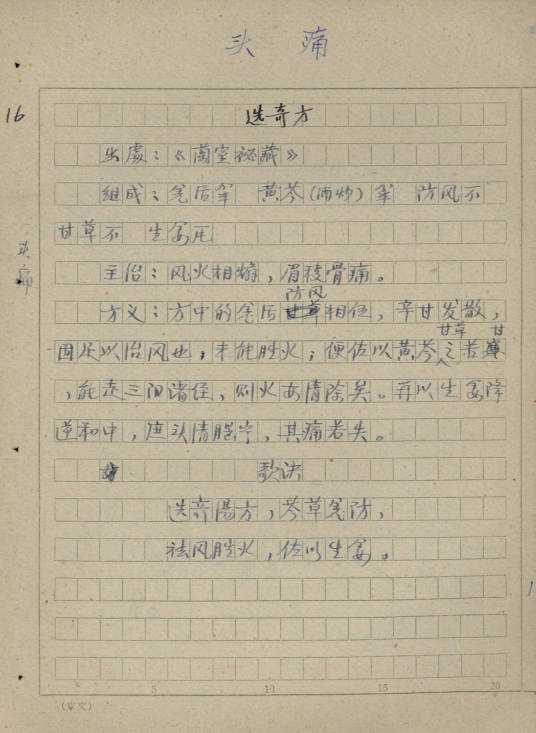 头痛
16
选奇方
出處：《蘭室祕藏》
组成：羌活 黄芩（酒炒） 防风
甘草 生姜
头痛
主治：风火相煽，眉稜骨痛。
防风
方义：方中的羌活相伍，辛甘发散，
甘草 甘
固足以治风也；未能胜火；便佐以黄芩之苦
，能走三阳诸经，则火亦清除矣。再以生姜降
逆和中，庶头清脑宁，其痛若失。
歌诀
选奇汤方，芩草羌防，
祛风胜火，佐以生姜。
5 10 15 20